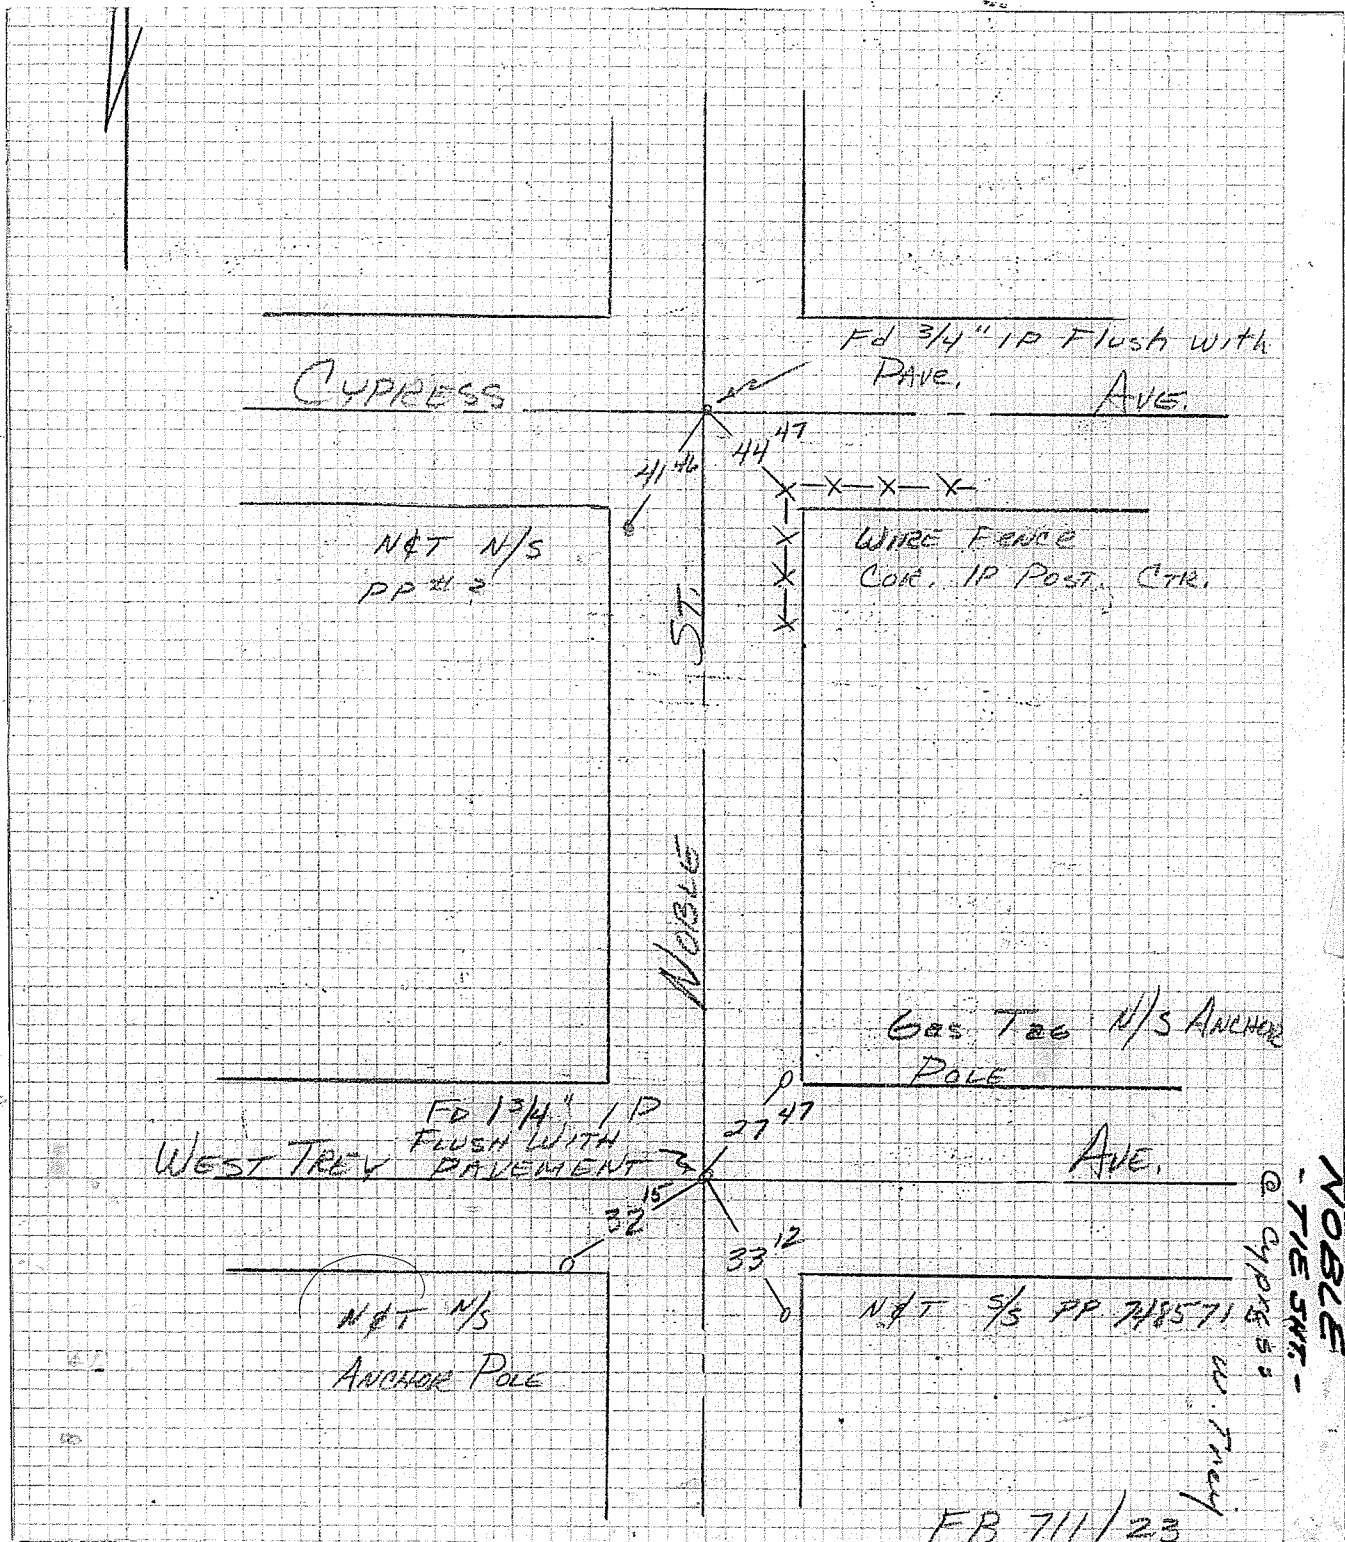 Fd 3/4" IP Flush with
PAVE.
CYPRESS AVE.
41 46
44 47
N&T N/S
PP # 2
WIRE FENCE
COR. IP POST. CTR.
NOBLE ST.
Gas Tag N/S ANCHOR
POLE
FD 1 3/4" IP
FLUSH WITH
PAVEMENT
WEST TREY AVE.
27 47
32 15
33 12
N&T N/S
ANCHOR POLE
N&T S/S PP 748571
NOBLE
- TIE SHT. -
@ Cypress
W. Trey
FB 711/23